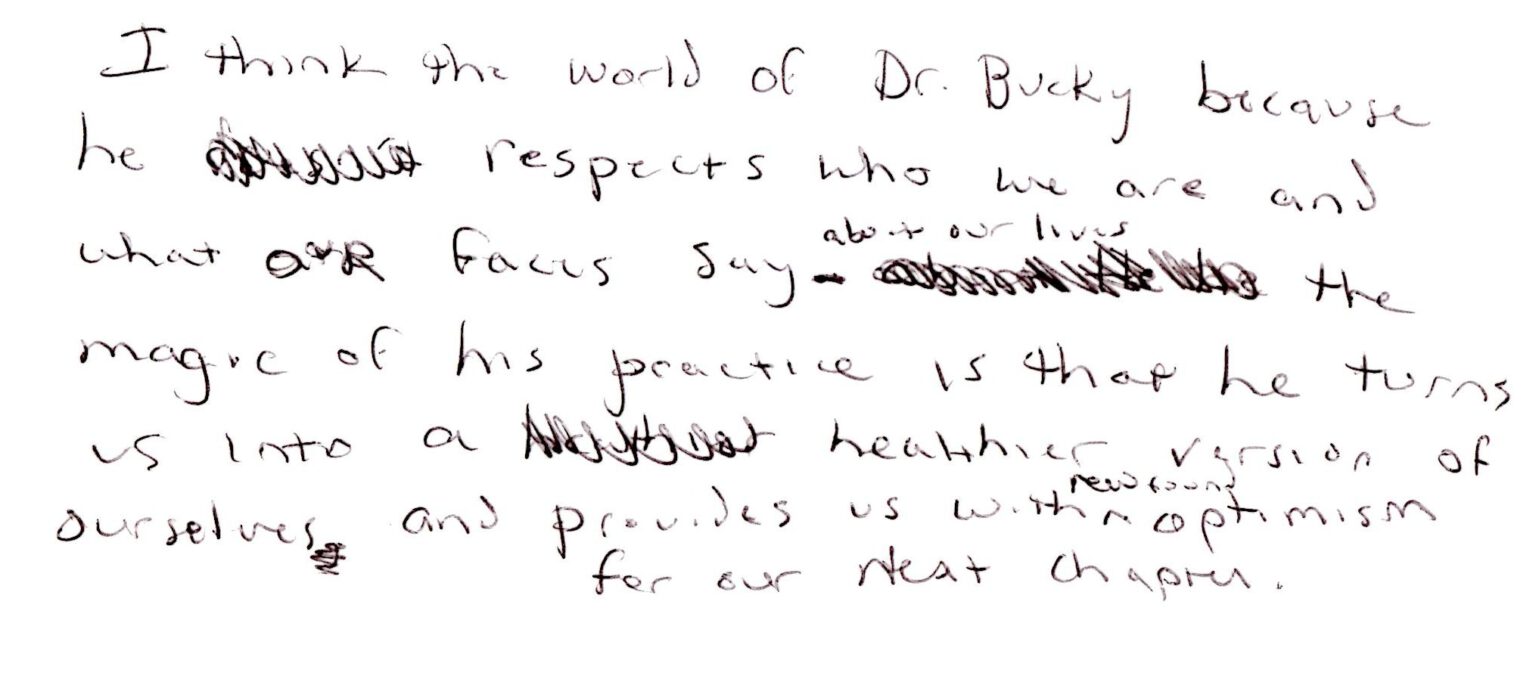 I think the world of Dr. Bucky because
he respects who we are and
what our faces say - about our lives the
magic of his practice is that he turns
us into a healthier version of
ourselves and provides us with newfound optimism
for our next chapter.